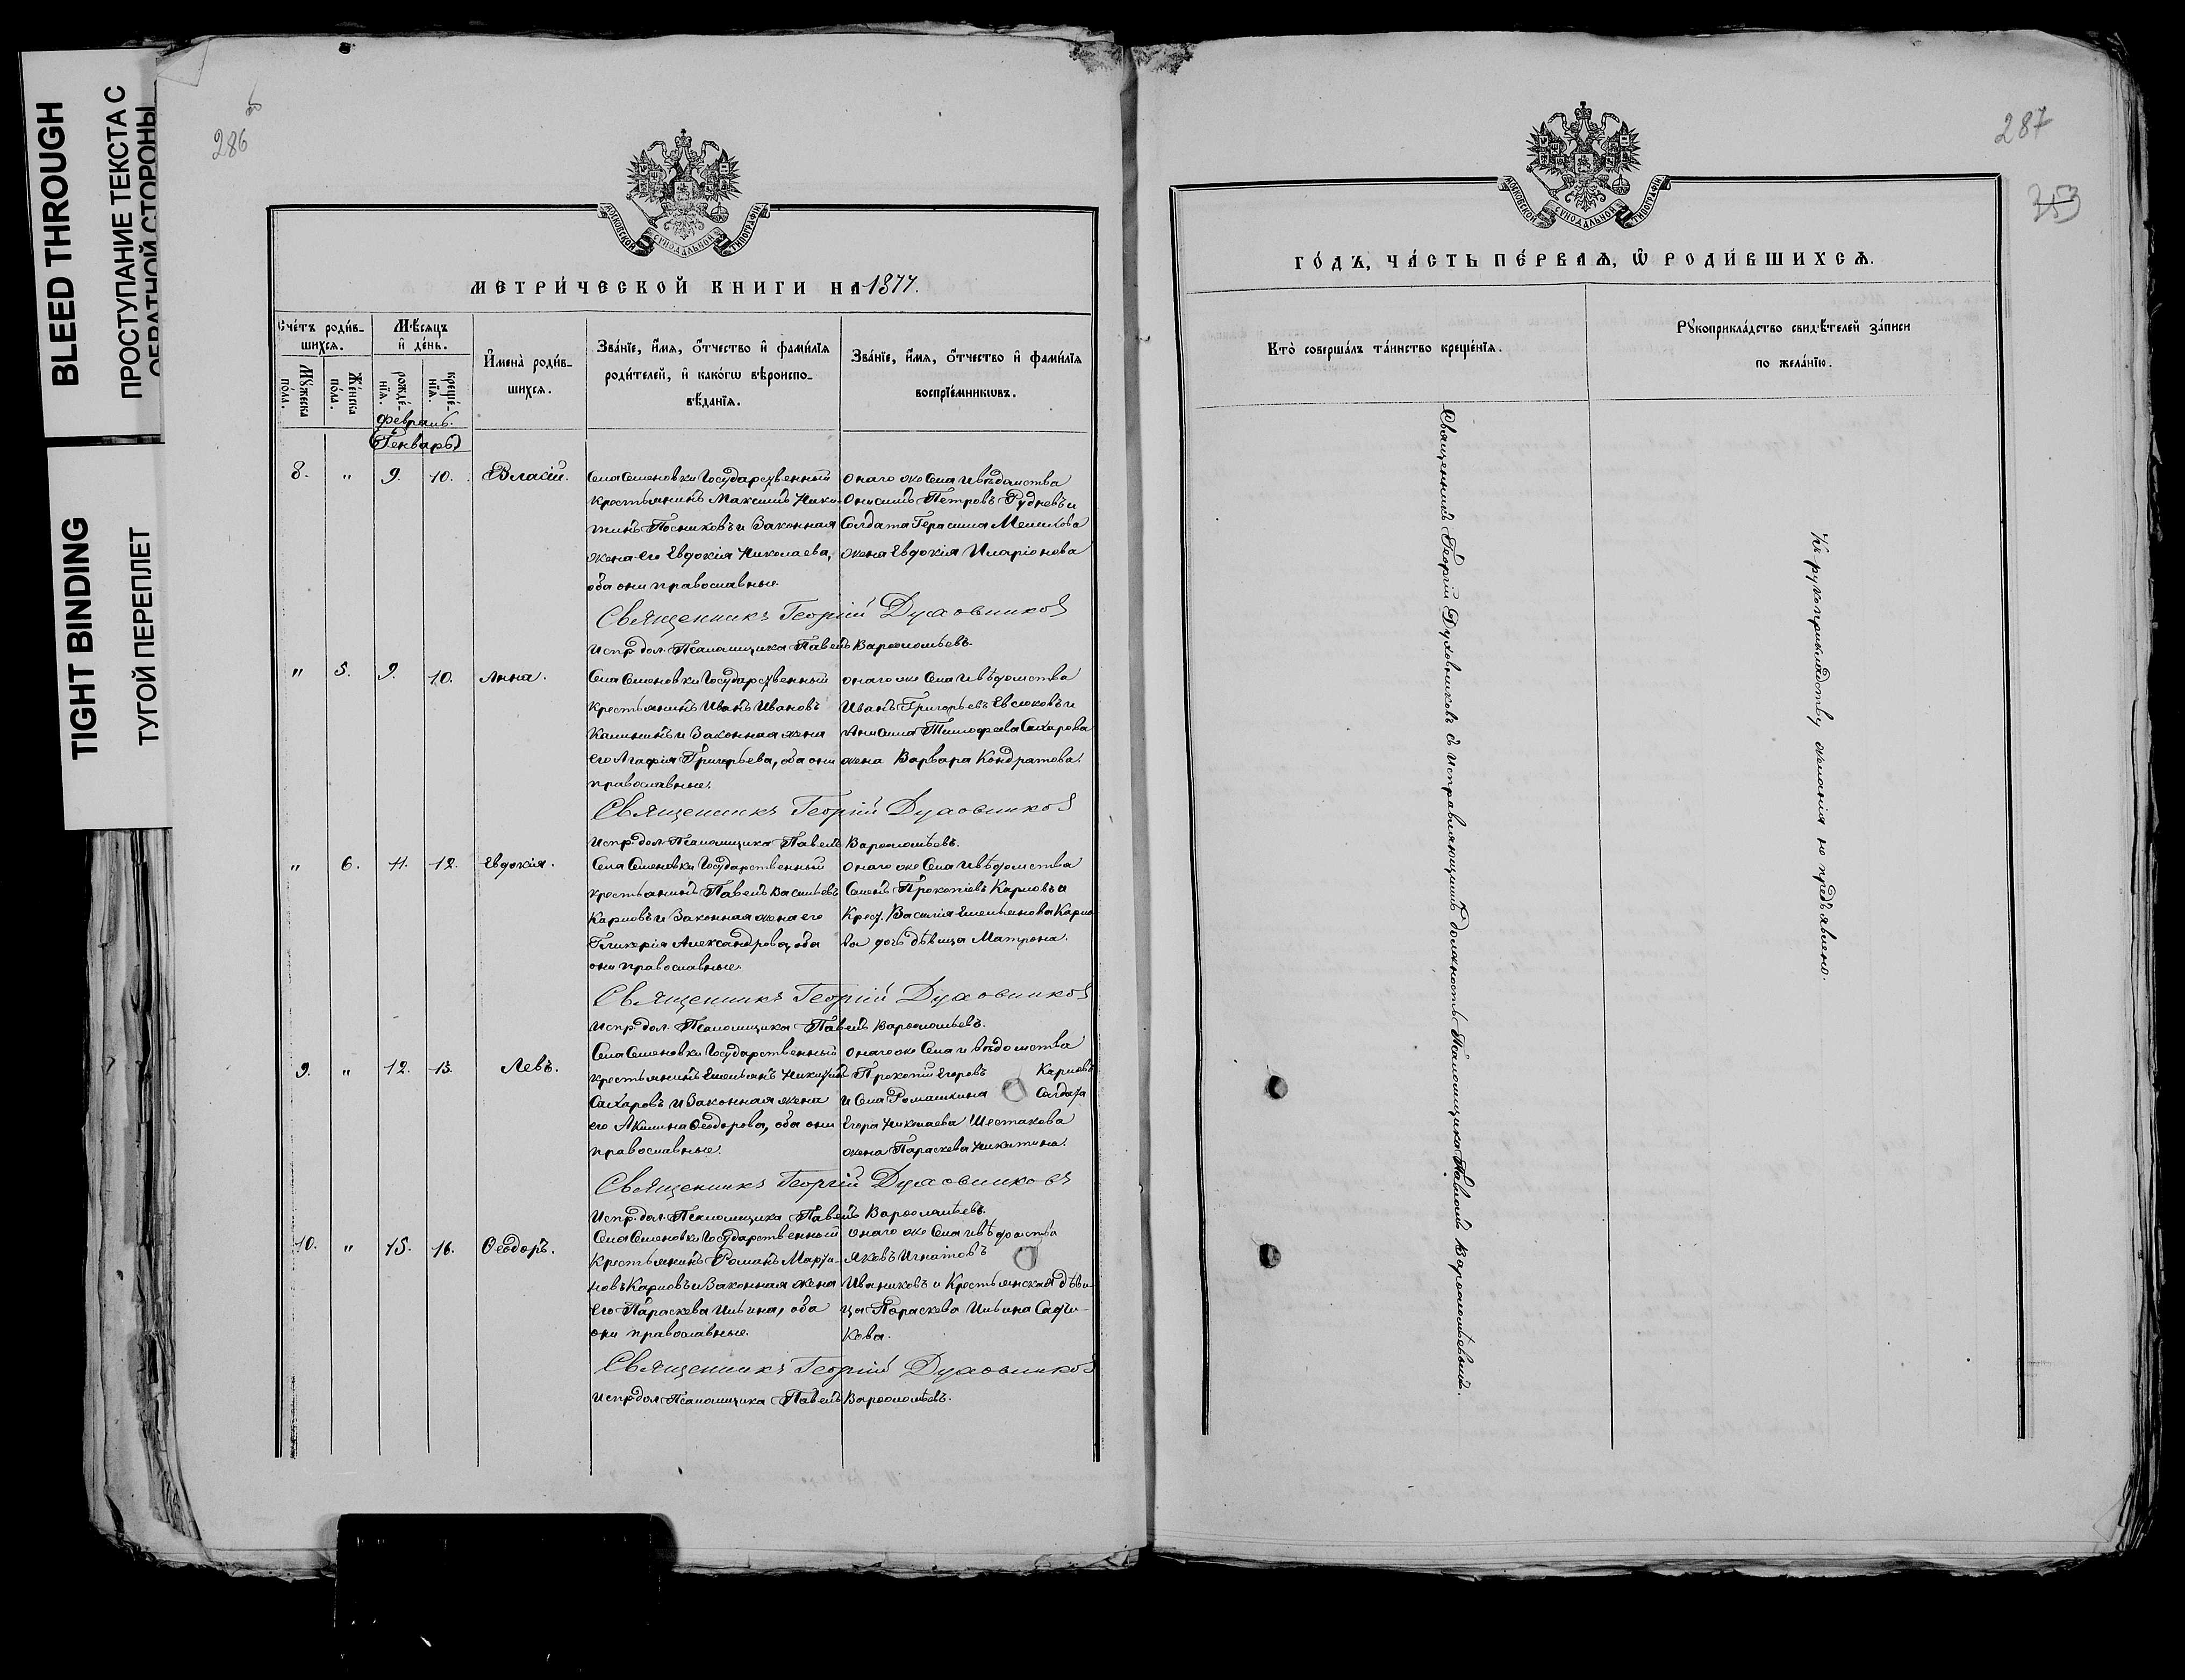 BLEED THROUGH
ПРОСТУПАНИЕ ТЕКСТА С
ОБРАТНОЙ СТОРОНЫ
TIGHT BINDING
ТУГОЙ ПЕРЕПЛЕТ
286
МОСКОВСКОЙ СѴНОДАЛЬНОЙ ТИПОГРАФІИ
МЕТРИ́ЧЕСКОЙ КНИГИ НА 1877.
Сче́тъ роди́в-
шихсѧ.
Мѣ́сѧцъ
и҆ де́нь.
И҆мена̀ роди́в-
шихсѧ.
Зва́нїе, и҆́мѧ, ѻ҆́тчество и҆ фами́лїѧ
роди́телей, и҆ како́гѡ вѣроиспо-
вѣ́данїѧ.
Зва́нїе, и҆́мѧ, ѻ҆́тчество и҆ фами́лїѧ
воспрїе́мникѡвъ.
Мꙋ́жеска
по́ла.
Же́нска
по́ла.
рожде́-
нїѧ.
креще́-
нїѧ.
Февраль.
(Генварь)
8. " 9. 10. Власій.
Села Семеновки Государственный
крестьянинъ Максимъ Ники-
тинъ Посниковъ и Законная
жена его Евдокія Николаева,
оба они православные.
Онаго же Села и вѣдомства
Онисимъ Петровъ Рудневъ и
Солдата Герасима Мешкова
жена Евдокія Иларіонова
Священникъ Георгій Духовниковъ
Испр. дол. Псаломщика Павелъ Варѳоломѣевъ.
" 5. 9. 10. Анна.
Села Семеновки Государственный
крестьянинъ Иванъ Ивановъ
Калининъ и Законная жена
его Агафія Григорьева, оба они
православные.
онаго же Села и вѣдомства
Иванъ Григорьевъ Евсюковъ и
Анисима Тимофеева Сахарова
жена Варвара Кондратова.
Священникъ Георгій Духовниковъ
Испр. дол. Псаломщика Павелъ Варѳоломѣевъ.
" 6. 11. 12. Евдокія.
Села Семеновки Государственный
крестьянинъ Павелъ Васильевъ
Карловъ и Законная жена его
Гликерія Александрова, оба
они православные.
онаго же Села и вѣдомства
Семенъ Прокопіевъ Карловъ и
Крест. Василія Емельянова Карло
ва дочь дѣвица Матрона.
Священникъ Георгій Духовниковъ
Испр. дол. Псаломщика Павелъ Варѳоломѣевъ.
9. " 12. 13. Левъ.
Села Семеновки Государственный
крестьянинъ Емельянъ Никитинъ
Сахаровъ и Законная жена
его Акилина Ѳеодорова, оба они
православные.
онаго же Села и вѣдомства
Прокопій Егоровъ Карловъ
и Села Ромашкина Солдата
Егора Николаева Шестакова
жена Параскева Никитина.
Священникъ Георгій Духовниковъ
Испр. дол. Псаломщика Павелъ Варѳоломѣевъ.
10. " 15. 16. Ѳеодоръ.
Села Семеновки Государственный
Крестьянинъ Романъ Марти-
новъ Карловъ и Законная жена
его Параскева Ильина, оба
они православные.
Онаго же Села и вѣдомства
Яковъ Игнатовъ
Иваниковъ и Крестьянская дѣви-
ца Параскева Ильина Сади-
кова.
Священникъ Георгій Духовниковъ
Испр. дол. Псаломщика Павелъ Варѳоломѣевъ.
287
353
МОСКОВСКОЙ СѴНОДАЛЬНОЙ ТИПОГРАФІИ
ГО́ДЪ, ЧА́СТЬ ПЕ́РВАѦ, Ѡ҆ РОДИ́ВШИХСѦ.
Кто̀ соверша́лъ та́инство креще́нїѧ.
Рꙋкоприкла́дство свидѣ́телей за́писи
по жела́нїю.
Священникъ Георгій Духовниковъ съ Исправляющимъ должность Псаломщика Павломъ Варѳоломѣевымъ.
Къ рукоприкладству желанія не предъявлено.